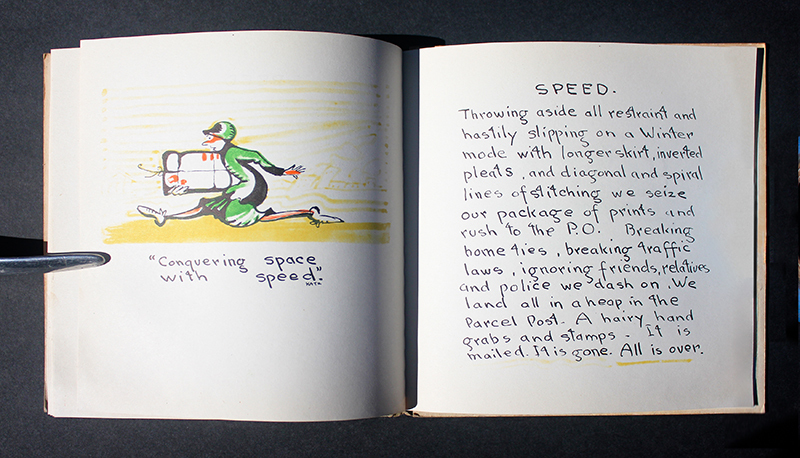 "Conquering space
with speed."
KATA
SPEED.
Throwing aside all restraint and
hastily slipping on a Winter
mode with longer skirt, inverted
pleats, and diagonal and spiral
lines of stitching we seize
our package of prints and
rush to the P.O. Breaking
home ties, breaking traffic
laws, ignoring friends, relatives
and police we dash on. We
land all in a heap in the
Parcel Post. A hairy hand
grabs and stamps. It is
mailed. It is gone. All is over.